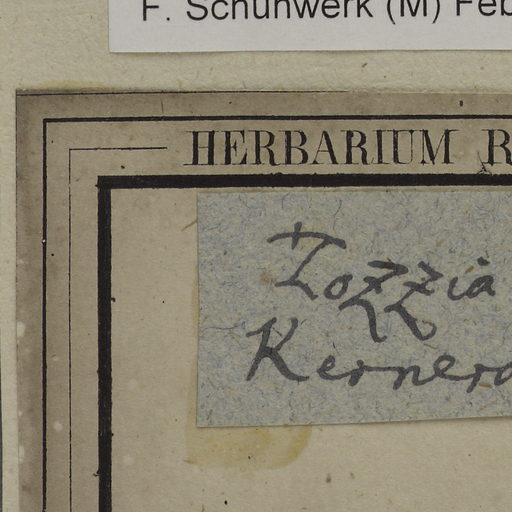 F. Schuhwerk (M) Feb
HERBARIUM R
Tozzia
Kerner